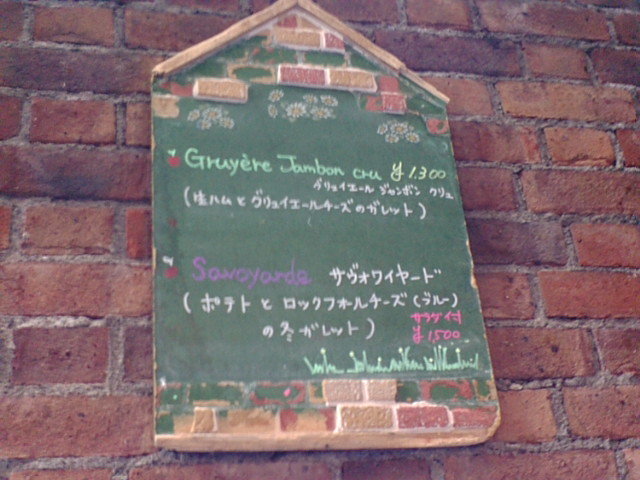 Gruyère Jambon cru ¥1.300
グリュイエール ジャンボン クリュ
(生ハムとグリュイエールチーズのガレット)
Savoyarde サヴォワイヤード
(ポテトとロックフォールチーズ(ブルー)
の冬ガレット) サラダ付
¥1,500